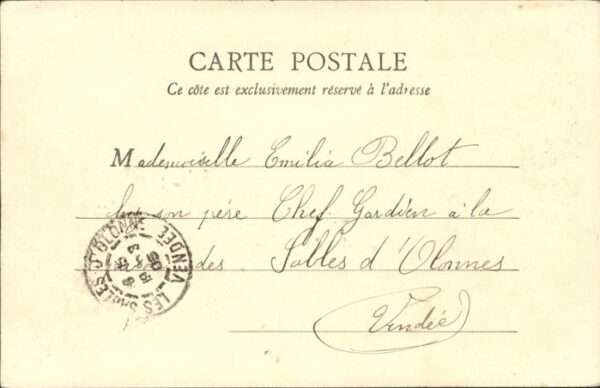 CARTE POSTALE
Ce côté est exclusivement réservé à l'adresse
Mademoiselle Emilia Bellot
son père Chef Gardien à la
des Sables d'Olonnes
Vendée
LES SABLES D'OLONNE
VENDEE